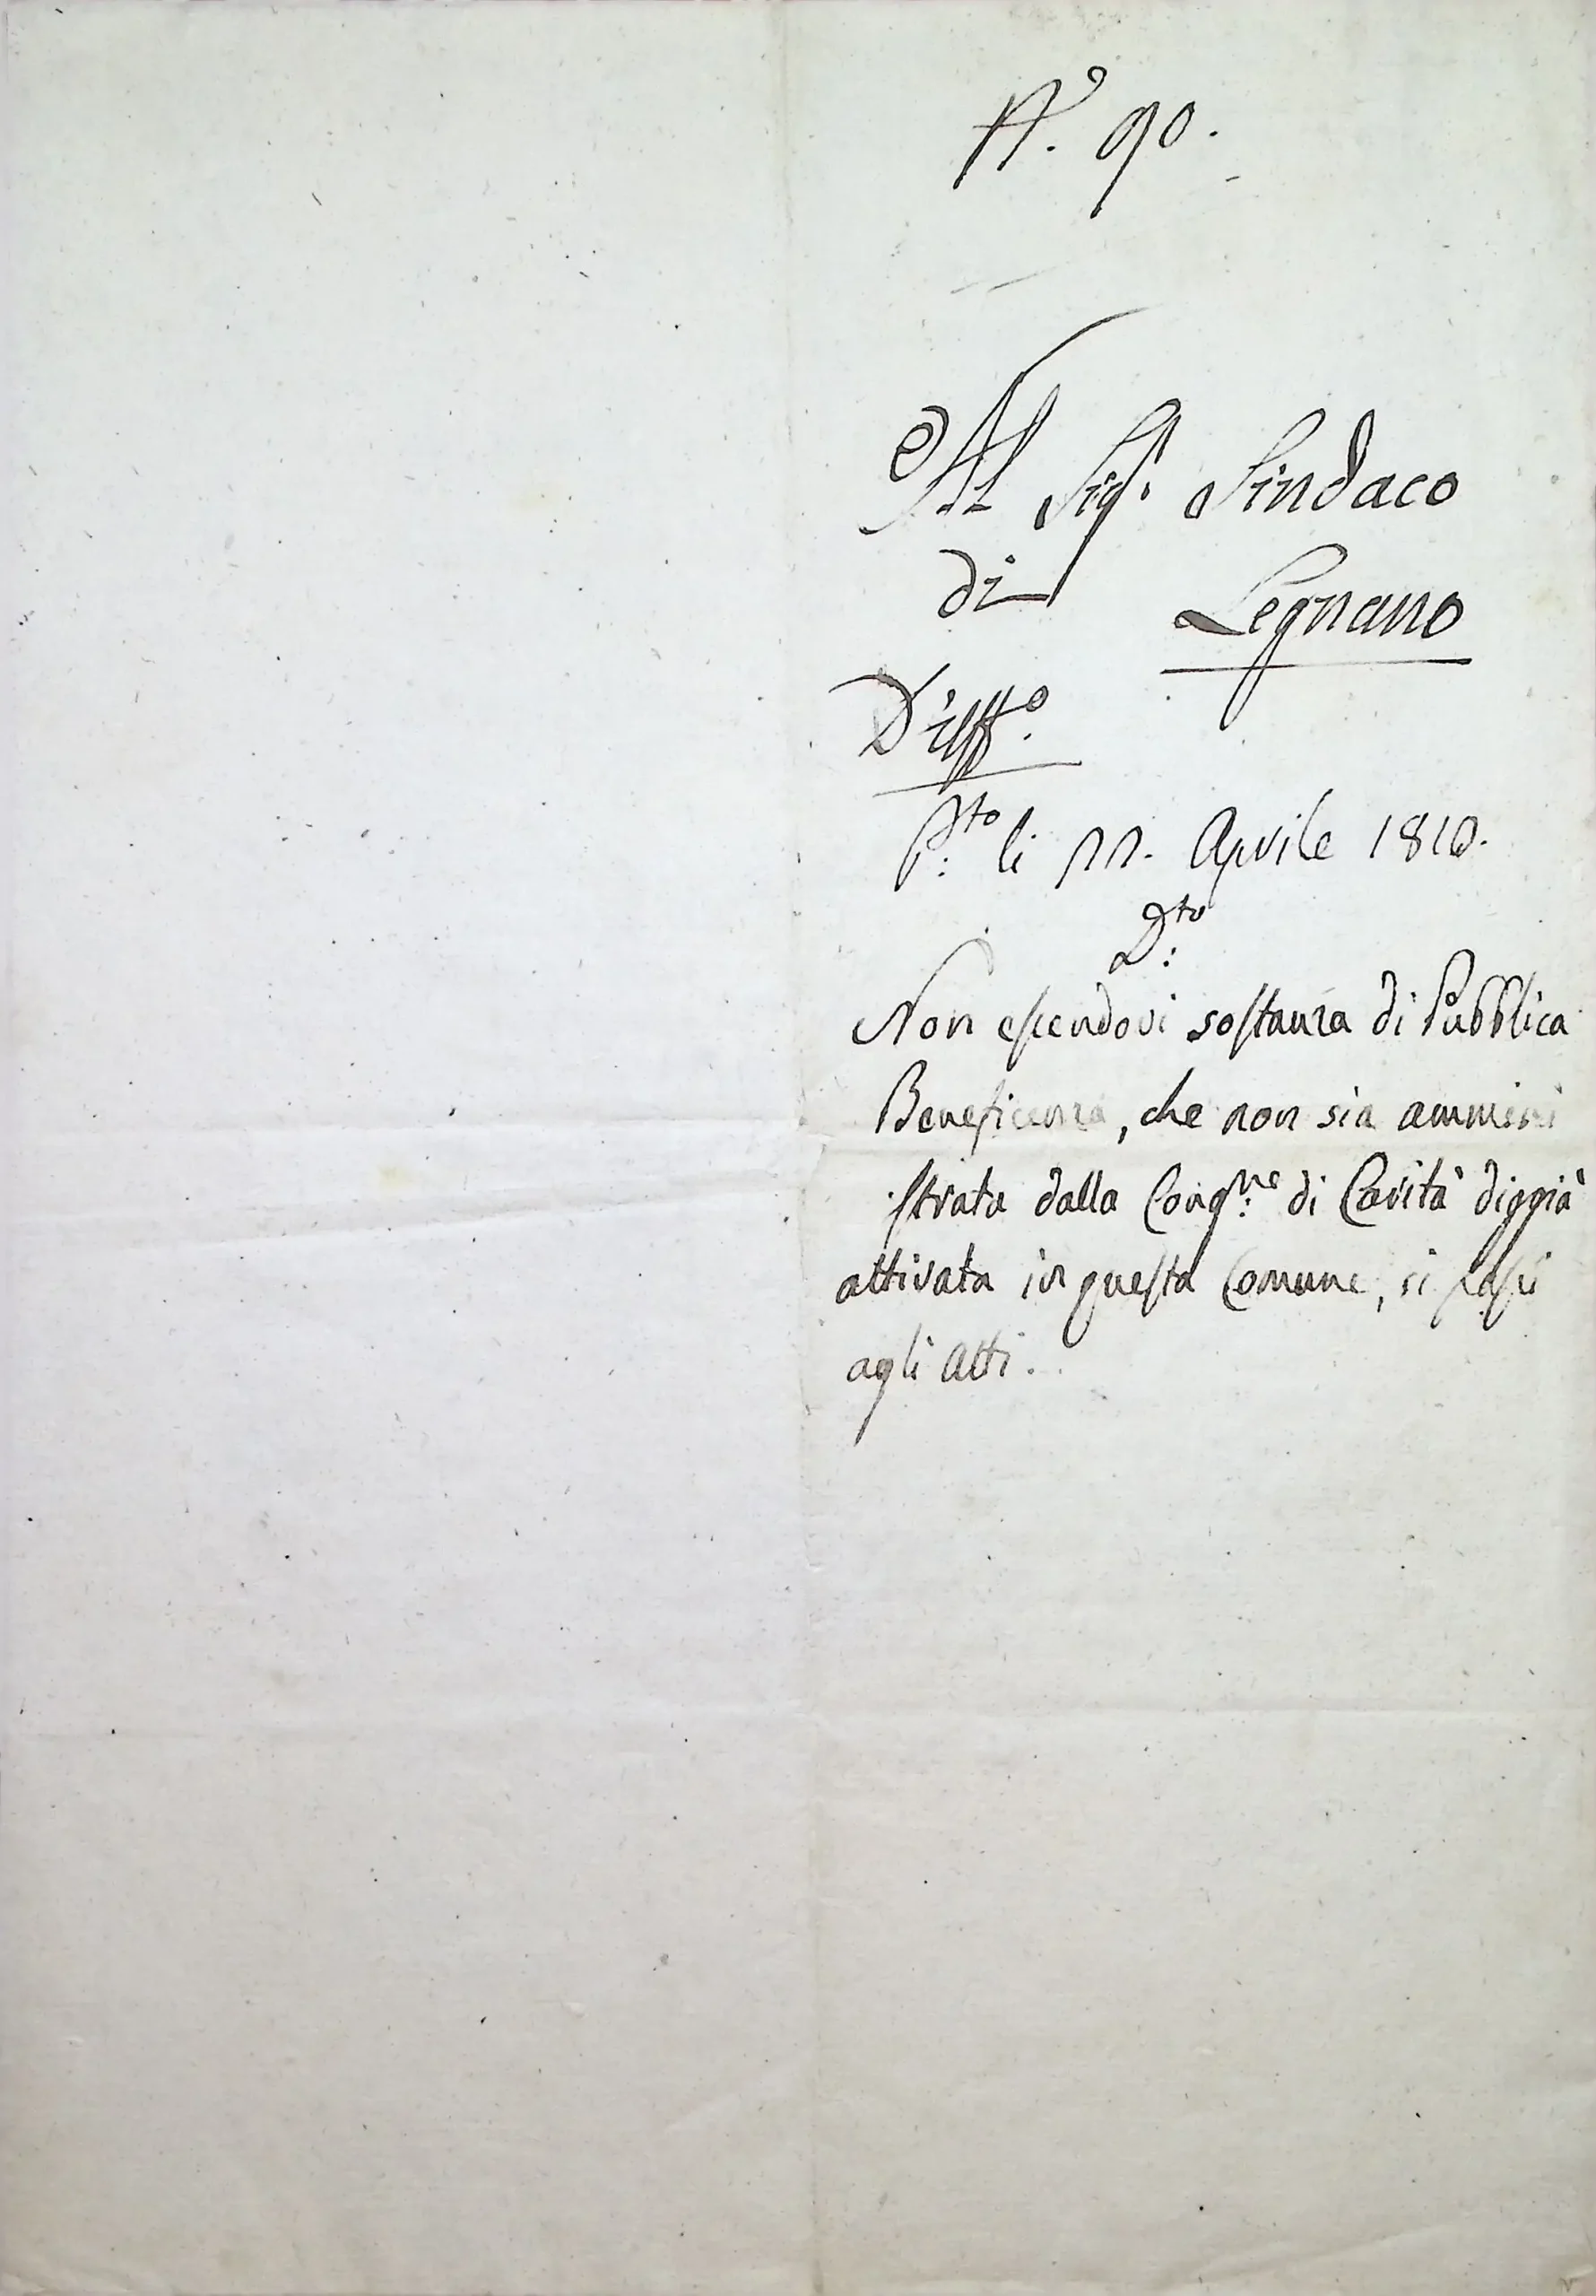 N.º 90.
Al Sig.r Sindaco
di Legnano
D'uff.º
P.to li 22. Aprile 1810.
D.to
Non essendovi sostanza di Pubblica
Beneficenza, che non sia ammini
strata dalla Cong.ne di Carità diggià
attivata in questa Comune, si passi
agli Atti.